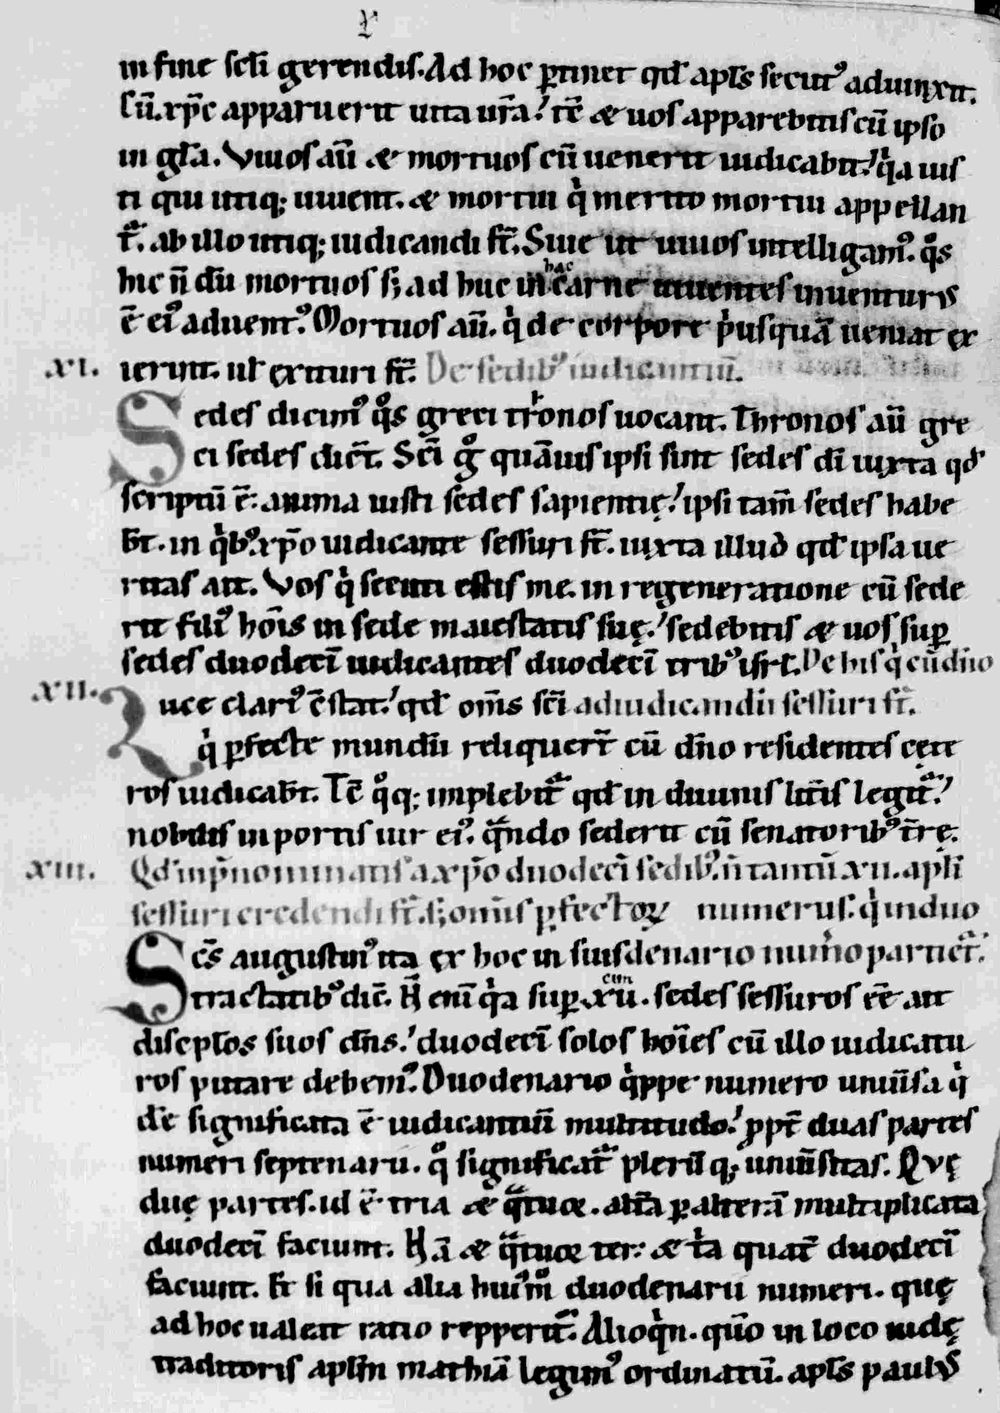 v
in fine scl̄i gerendis. Ad hoc ꝑtinet qđ apl̄s secut᾽ adiunxit.
Cū xp̄c apparuerit uita ur̄a.ˊ tc̄ & uos apparebitis cū ipso
in gl̄a. Viuos aū & mortuos cū uenerit iudicabit.ˊ q̇a ius
ti qui utiq; uiuent. & mortui q̇ merito mortui appellan
t᷑. ab illo utiq; iudicandi st̄. Siue ut uiuos intelligam᾽. qͦs
hic n̄ dū mortuos s; ad huc in hac carne uiuentes inuenturus
ē ei᾽ aduent᾽. Mortuos aū. q̇ de corpore ṗusquā ueniat ex
xi. ierunt. ul̄ exituri st̄. De sedib᾽ iudicantiū.
Sedes dicim᾽ qͦs greci tronos uocant. Thronos aū gre
ci sedes dic̄t. Sc̄i gͦ quāuis ipsi sint sedes dī iuxta qđ
scriptū ē: anima iusti sedes sapientię.ˊ ipsi tam̄ sedes habe
bt̄. in q̇b᾽ xp̄o iudicante sessuri st̄. iuxta illud qđ ipsa ue
ritas ait. Vos q̇ secuti estis me. in regeneratione cū sede
rit fili᾽ hōis in sede maiestatis suę.ˊ sedebitis & uos sup̄
sedes duodecī iudicantes duodecī trib᾽ isrl̄. De his q̇ cū dn̄o
xii. Luce clari᾽ c̄stat.ˊ qđ om̄s sc̄i ad iudicandū sessuri st̄.
q̇ ꝑfecte mundū reliquert̄ cū dn̄o residentes cęte
ros iudicabt̄. Tc̄ qͦq; implebit᷑ qđ in diuinis litt̄is legit᷑.ˊ
nobilis in portis uir ei᾽. qᷓndo sederit cū senatorib᾽ tr̄ę.
xiii. Qđ in p̄nominatis a xp̄o duodecī sedib᾽. n̄ tantū xii. apl̄i
sessuri credendi st̄. s; om̄is ꝑfectoꝝ numerus. q̇ in duo
Sc̄s augustin᾽ ita ex hoc in suis denario num̄o partiet᷑.
tractatib᾽ dic̄. N̄ eni q̇a sup̄ xii. cim sedes sessuros ēē ait
discplos suos dn̄s.ˊ duodecī solos hoīes cū illo iudicatu
ros putare debem᾽. Duodenario q̇ppe numero uniūsa q̇
dē significata ē iudicantiū multitudo.ˊ ꝓpt̄ duas partes
numeri septenarii. qͦ significat᷑ plerūq; uniūsitas. Quę
duę partes. id ē tria & qᷓtuor. alt̄a ꝑ alterā multiplicata
duodecī faciunt. Nā & qᷓtuor ter: & t̄a quat̄ duodecī
faciunt. Et si qua alia hui᾽mͦ duodenarii numeri. quę
ad hoc ualeat ratio repperit᷑. Alioq̇n. qm̄o in loco iudę
traditoris apl̄m mathiā legim᾽ ordinatū. apl̄s paulus